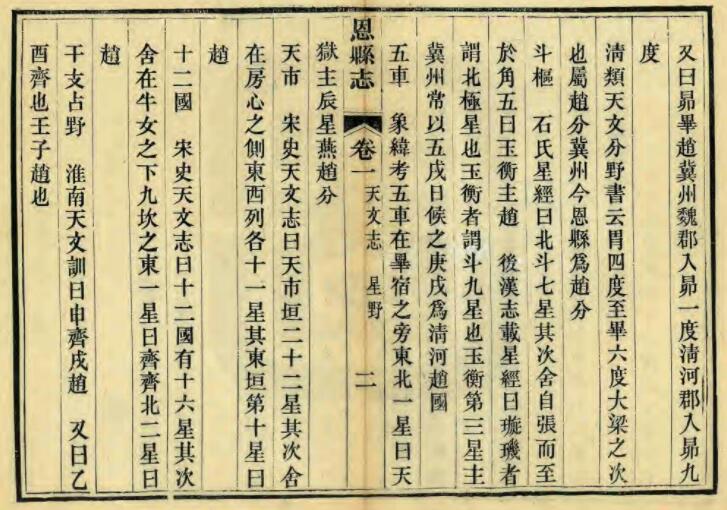 又曰昴畢趙冀州魏郡入昴一度淸河郡入昴九
度
淸類天文分野書云胃四度至畢六度大梁之次
也屬趙分冀州今恩縣爲趙分
斗樞　石氏星經曰北斗七星其次舍自張而至
於角五曰玉衡主趙　後漢志載星經曰璇璣者
謂北極星也玉衡者謂斗九星也玉衡第三星主
冀州常以五戌日候之庚戌爲淸河趙國
五車　象緯考五車在畢宿之旁東北一星曰天
恩縣志　卷一　天文志　星野　二
獄主辰星燕趙分
天市　宋史天文志曰天市垣二十二星其次舍
在房心之側東西列各十一星其東垣第十星曰
趙
十二國　宋史天文志曰十二國有十六星其次
舍在牛女之下九坎之東一星曰齊齊北二星曰
趙
干支占野　淮南天文訓曰申齊戌趙　又曰乙
酉齊也壬子趙也